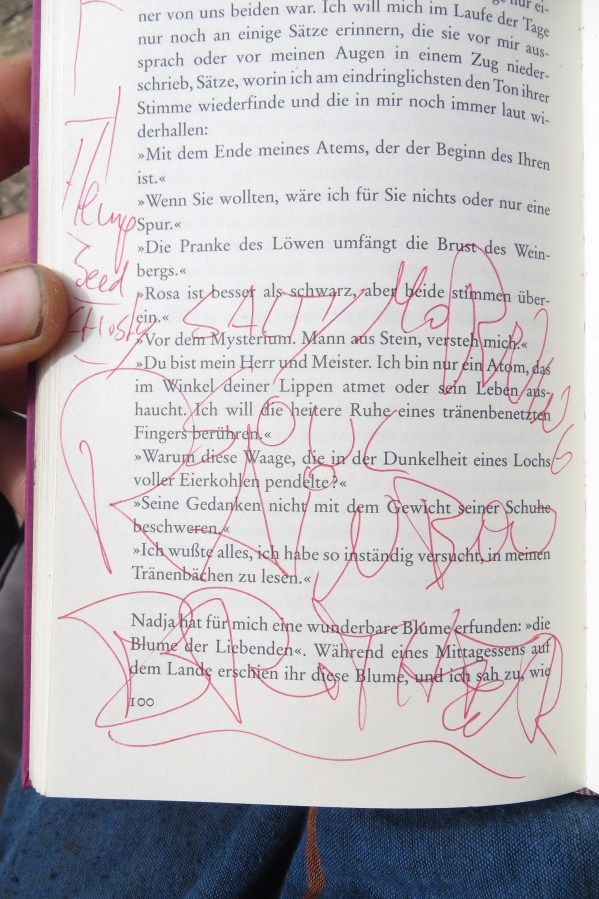 ner von uns beiden war. Ich will mich im Laufe der Tage
nur noch an einige Sätze erinnern, die sie vor mir aus-
sprach oder vor meinen Augen in einem Zug nieder-
schrieb, Sätze, worin ich am eindringlichsten den Ton ihrer
Stimme wiederfinde und die in mir noch immer laut wi-
derhallen:
»Mit dem Ende meines Atems, der der Beginn des Ihren
ist.«
»Wenn Sie wollten, wäre ich für Sie nichts oder nur eine
Spur.«
»Die Pranke des Löwen umfängt die Brust des Wein-
bergs.«
»Rosa ist besser als schwarz, aber beide stimmen über-
ein.«
»Vor dem Mysterium. Mann aus Stein, versteh mich.«
»Du bist mein Herr und Meister. Ich bin nur ein Atom, das
im Winkel deiner Lippen atmet oder sein Leben aus-
haucht. Ich will die heitere Ruhe eines tränenbenetzten
Fingers berühren.«
»Warum diese Waage, die in der Dunkelheit eines Lochs
voller Eierkohlen pendelte?«
»Seine Gedanken nicht mit dem Gewicht seiner Schuhe
beschweren.«
»Ich wußte alles, ich habe so inständig versucht, in meinen
Tränenbächen zu lesen.«
Nadja hat für mich eine wunderbare Blume erfunden: »die
Blume der Liebenden«. Während eines Mittagessens auf
dem Lande erschien ihr diese Blume, und ich sah zu, wie
100
Hemp
Seed
SALTY MORNING
BROTHER